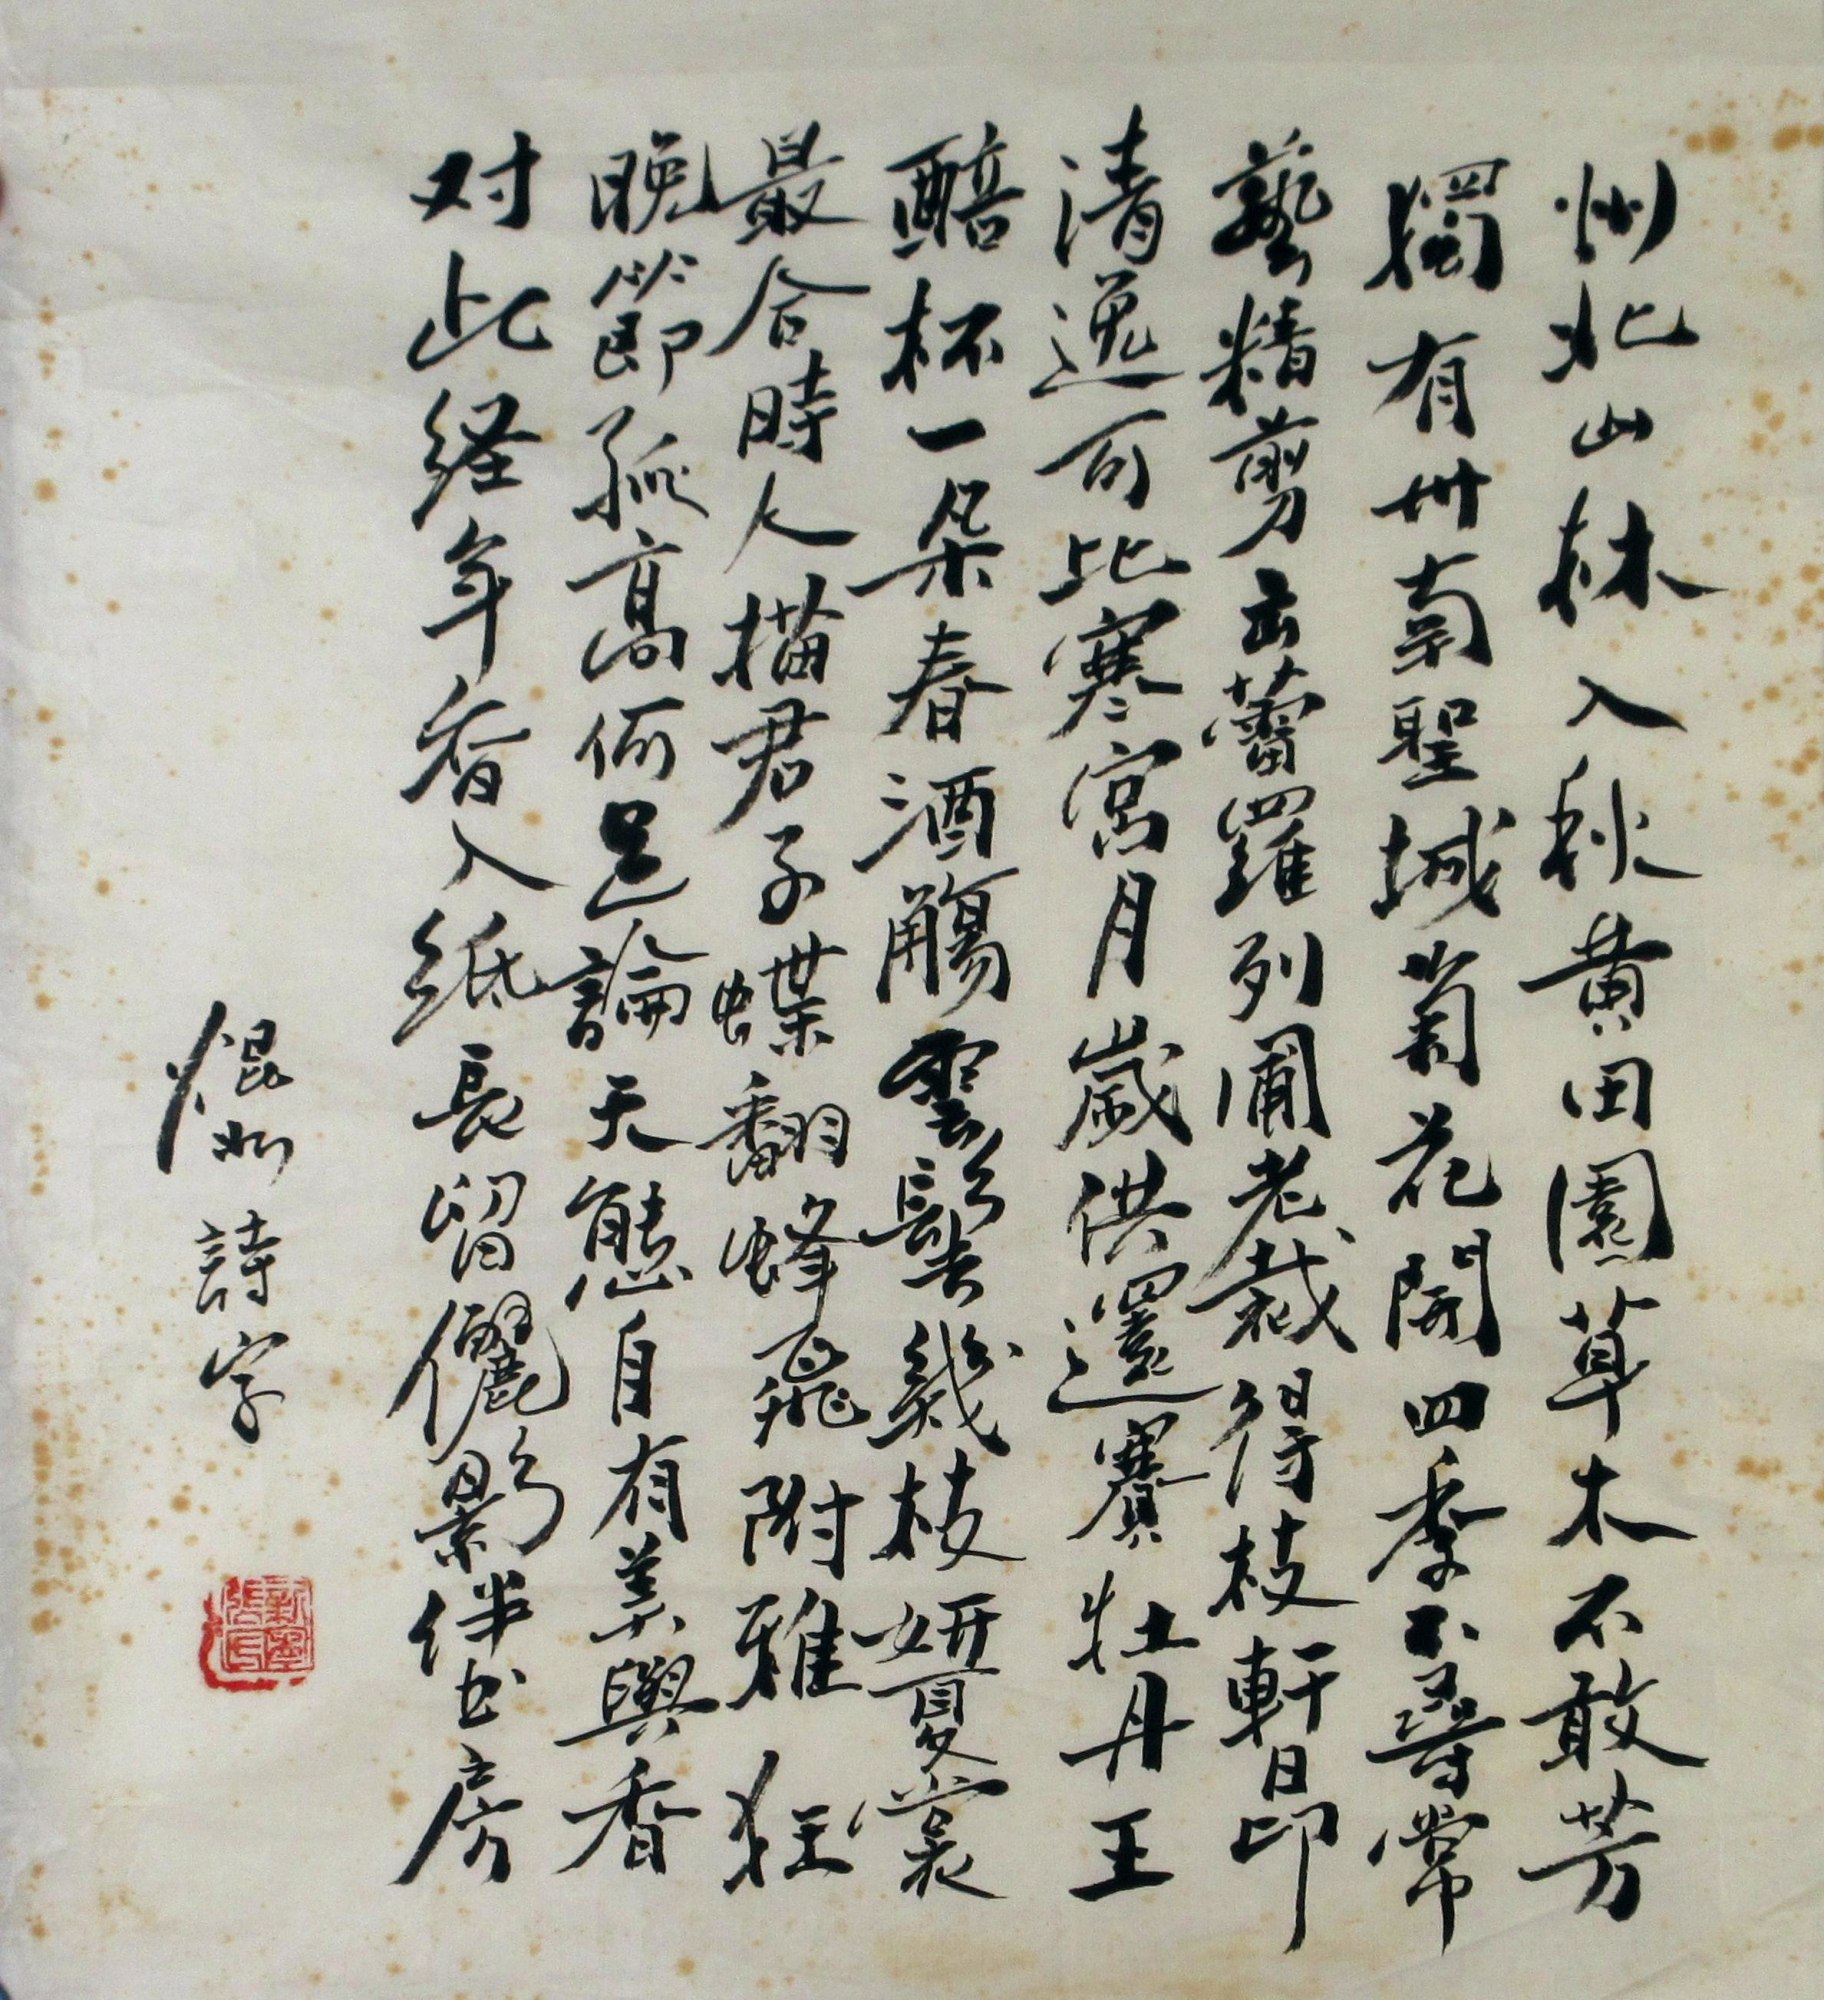 州北山林入秋黄田園草木不敢芳
獨有卅菊聖城菊花開四季不尋常
藝精剪出蕾羅列圃老裁得枝軒昂
清逸可比寒宮月歲供還賽牡丹王
醅杯一朵春酒觴雲鬓幾枝妍夏裳
最合時人描君子蝶翻蜂飛附雅狂
晚節孤高何足論天態自有美與香
对此经年香入紙長留儷影伴书房
焜如詩字